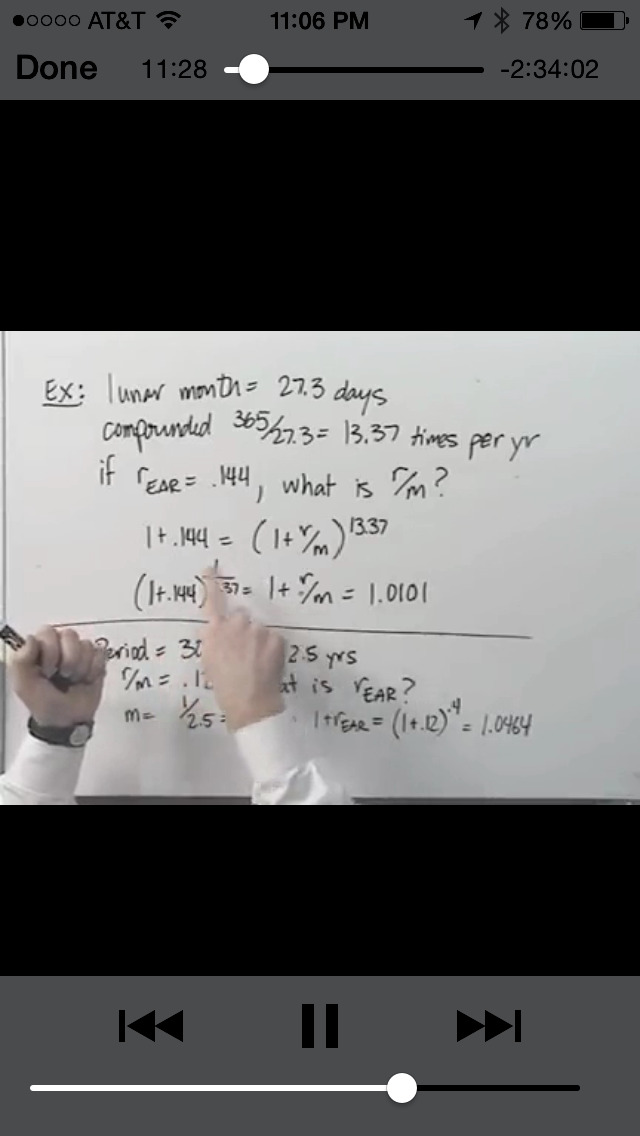 AT&T 11:06 PM 78%
Done 11:28 -2:34:02
Ex: lunar month = 27.3 days
compounded 365/27.3 = 13.37 times per yr
if rEAR = .144, what is r/m?
1+.144 = (1+r/m)^13.37
(1+.144) 37 = 1+r/m = 1.0101
Period = 30 2.5 yrs
r/m = .1 at is rEAR?
m = 1/2.5 = 1+rEAR = (1+.12)^.4 = 1.0464